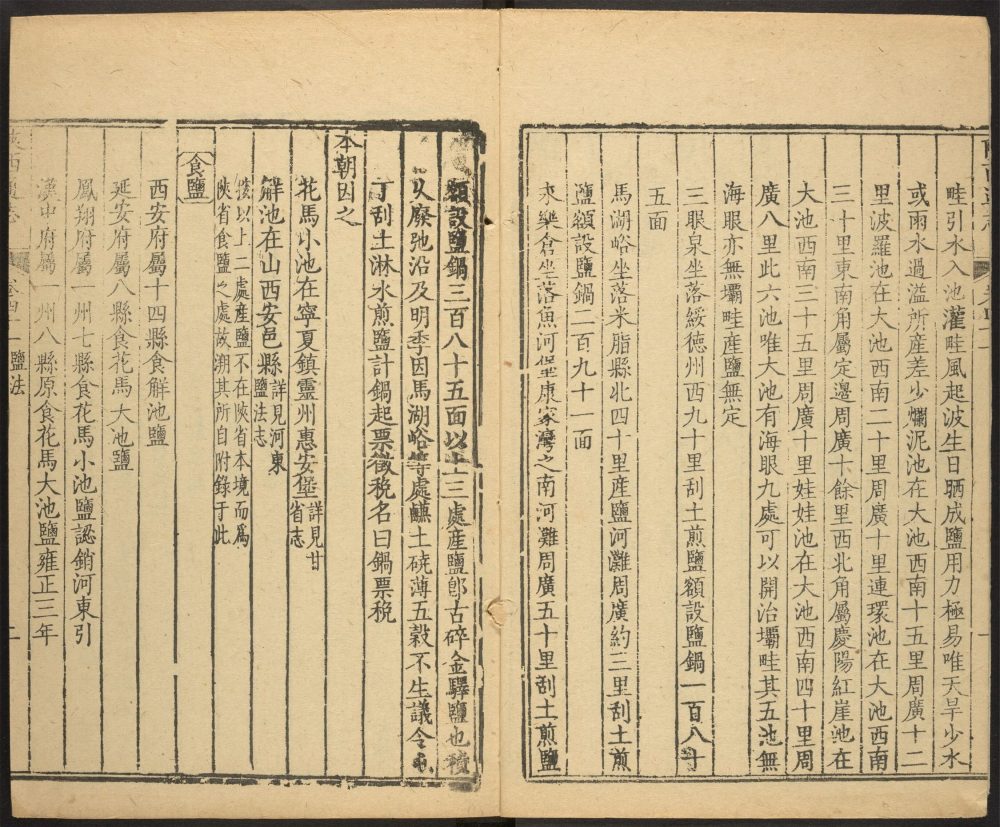 畦引水入池灌畦風起波生日晒成鹽用力極易唯天旱少水
或雨水過溢所產差少爛泥池在大池西南十五里周廣十二
里波羅池在大池西南二十里周廣十里連環池在大池西南
三十里東南角屬定邊周廣十餘里西北角屬慶陽紅崖池在
大池西南三十五里周廣十里娃娃池在大池西南四十里周
廣八里此六池唯大池有海眼九處可以開治壩畦其五池無
海眼亦無壩畦產鹽無定
三眼泉坐落綏德州西九十里刮土煎鹽額設鹽鍋一百八十
五面
馬湖峪坐落米脂縣北四十里產鹽河灘周廣約三里刮土煎
鹽額設鹽鍋二百九十一面
永樂倉坐落魚河堡康家灣之南河灘周廣五十里刮土煎鹽
額設鹽鍋三百八十五面以上三處產鹽卽古碎金驛鹽也積
久廢弛沿及明季因馬湖峪等處鹻土硗薄五穀不生議令
丁刮土淋水煎鹽計鍋起票徵稅名曰鍋票稅
本朝因之
花馬小池在寧夏鎮靈州惠安堡詳見甘省志
解池在山西安邑縣詳見河東鹽法志
按以上二處產鹽不在陝省本境而爲
陝省食鹽之處故溯其所自附錄于此
食鹽
西安府屬十四縣食解池鹽
延安府屬八縣食花馬大池鹽
鳳翔府屬一州七縣食花馬小池鹽認銷河東引
漢中府屬一州八縣原食花馬大池鹽雍正三年
鹽法